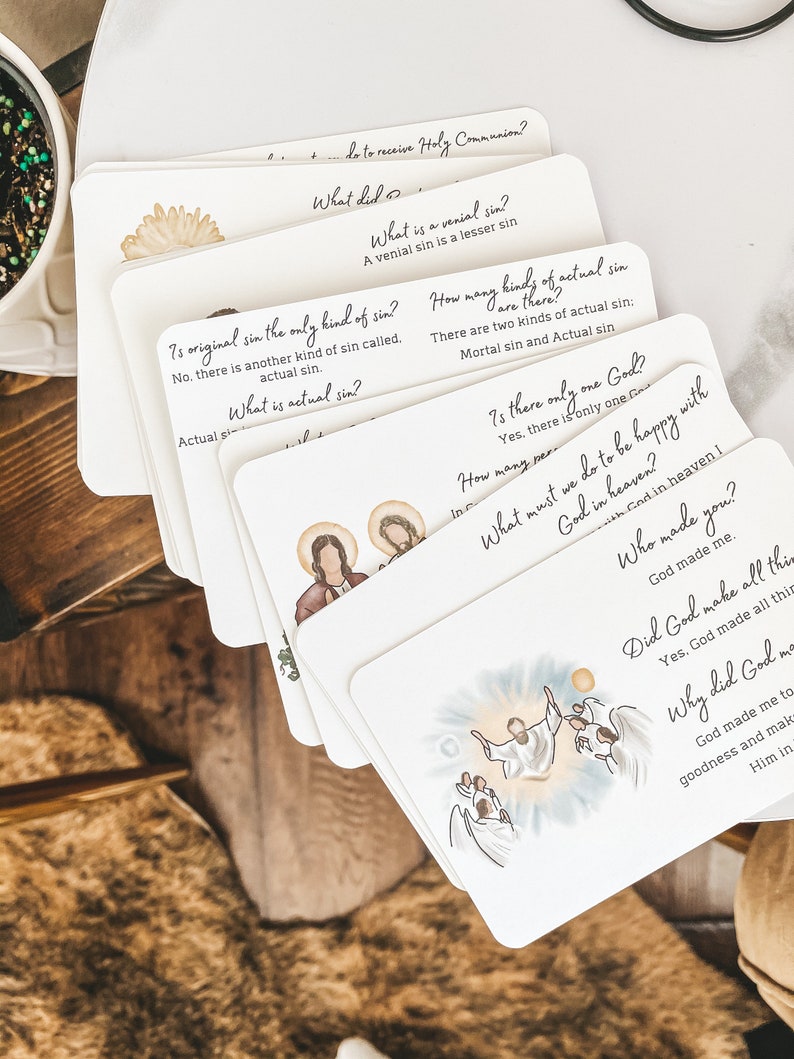 do to receive Holy Communion?
What did
What is a venial sin?
A venial sin is a lesser sin
Is original sin the only kind of sin?
No, there is another kind of sin called,
actual sin.
What is actual sin?
Actual sin
How many kinds of actual sin
are there?
There are two kinds of actual sin;
Mortal sin and Actual sin
Is there only one God?
Yes, there is only one God
How many
In
What must we do to be happy with
God in heaven?
with God in heaven I
Who made you?
God made me.
Did God make all
Yes, God made all
Why did God
God made me to
goodness and make
Him in